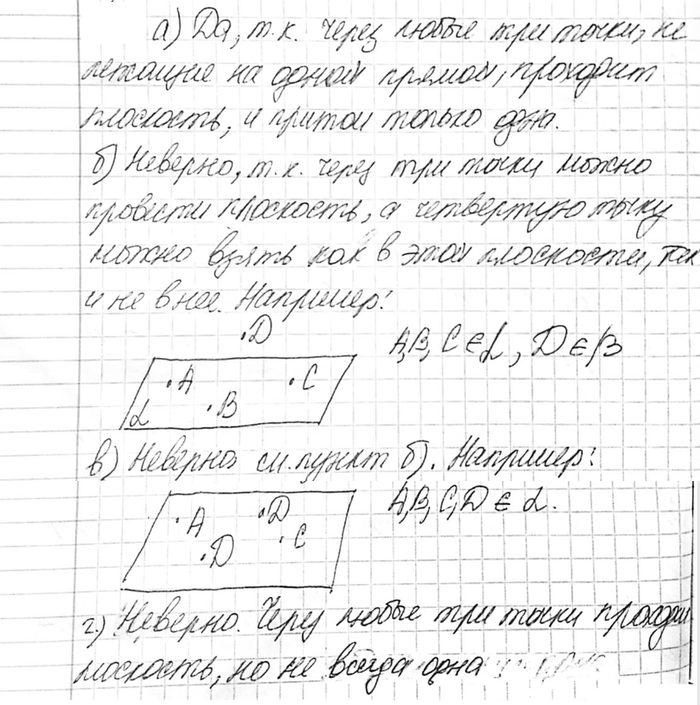 а) Да, т.к. через любые три точки, не
лежащие на одной прямой, проходит
плоскость, и притом только одна.
б) Неверно, т.к. через три точки можно
провести плоскость, а четвертую точку
можно взять как в этой плоскости, так
и не в нее. Например:
D
A, B, C ∈ α, D ∈ β
A
C
B
α
в) Неверно см. пункт б). Например:
A, B, C, D ∈ α.
A
D
C
D
г.) Неверно. Через любые три точки проходит
плоскость, но не всегда одна